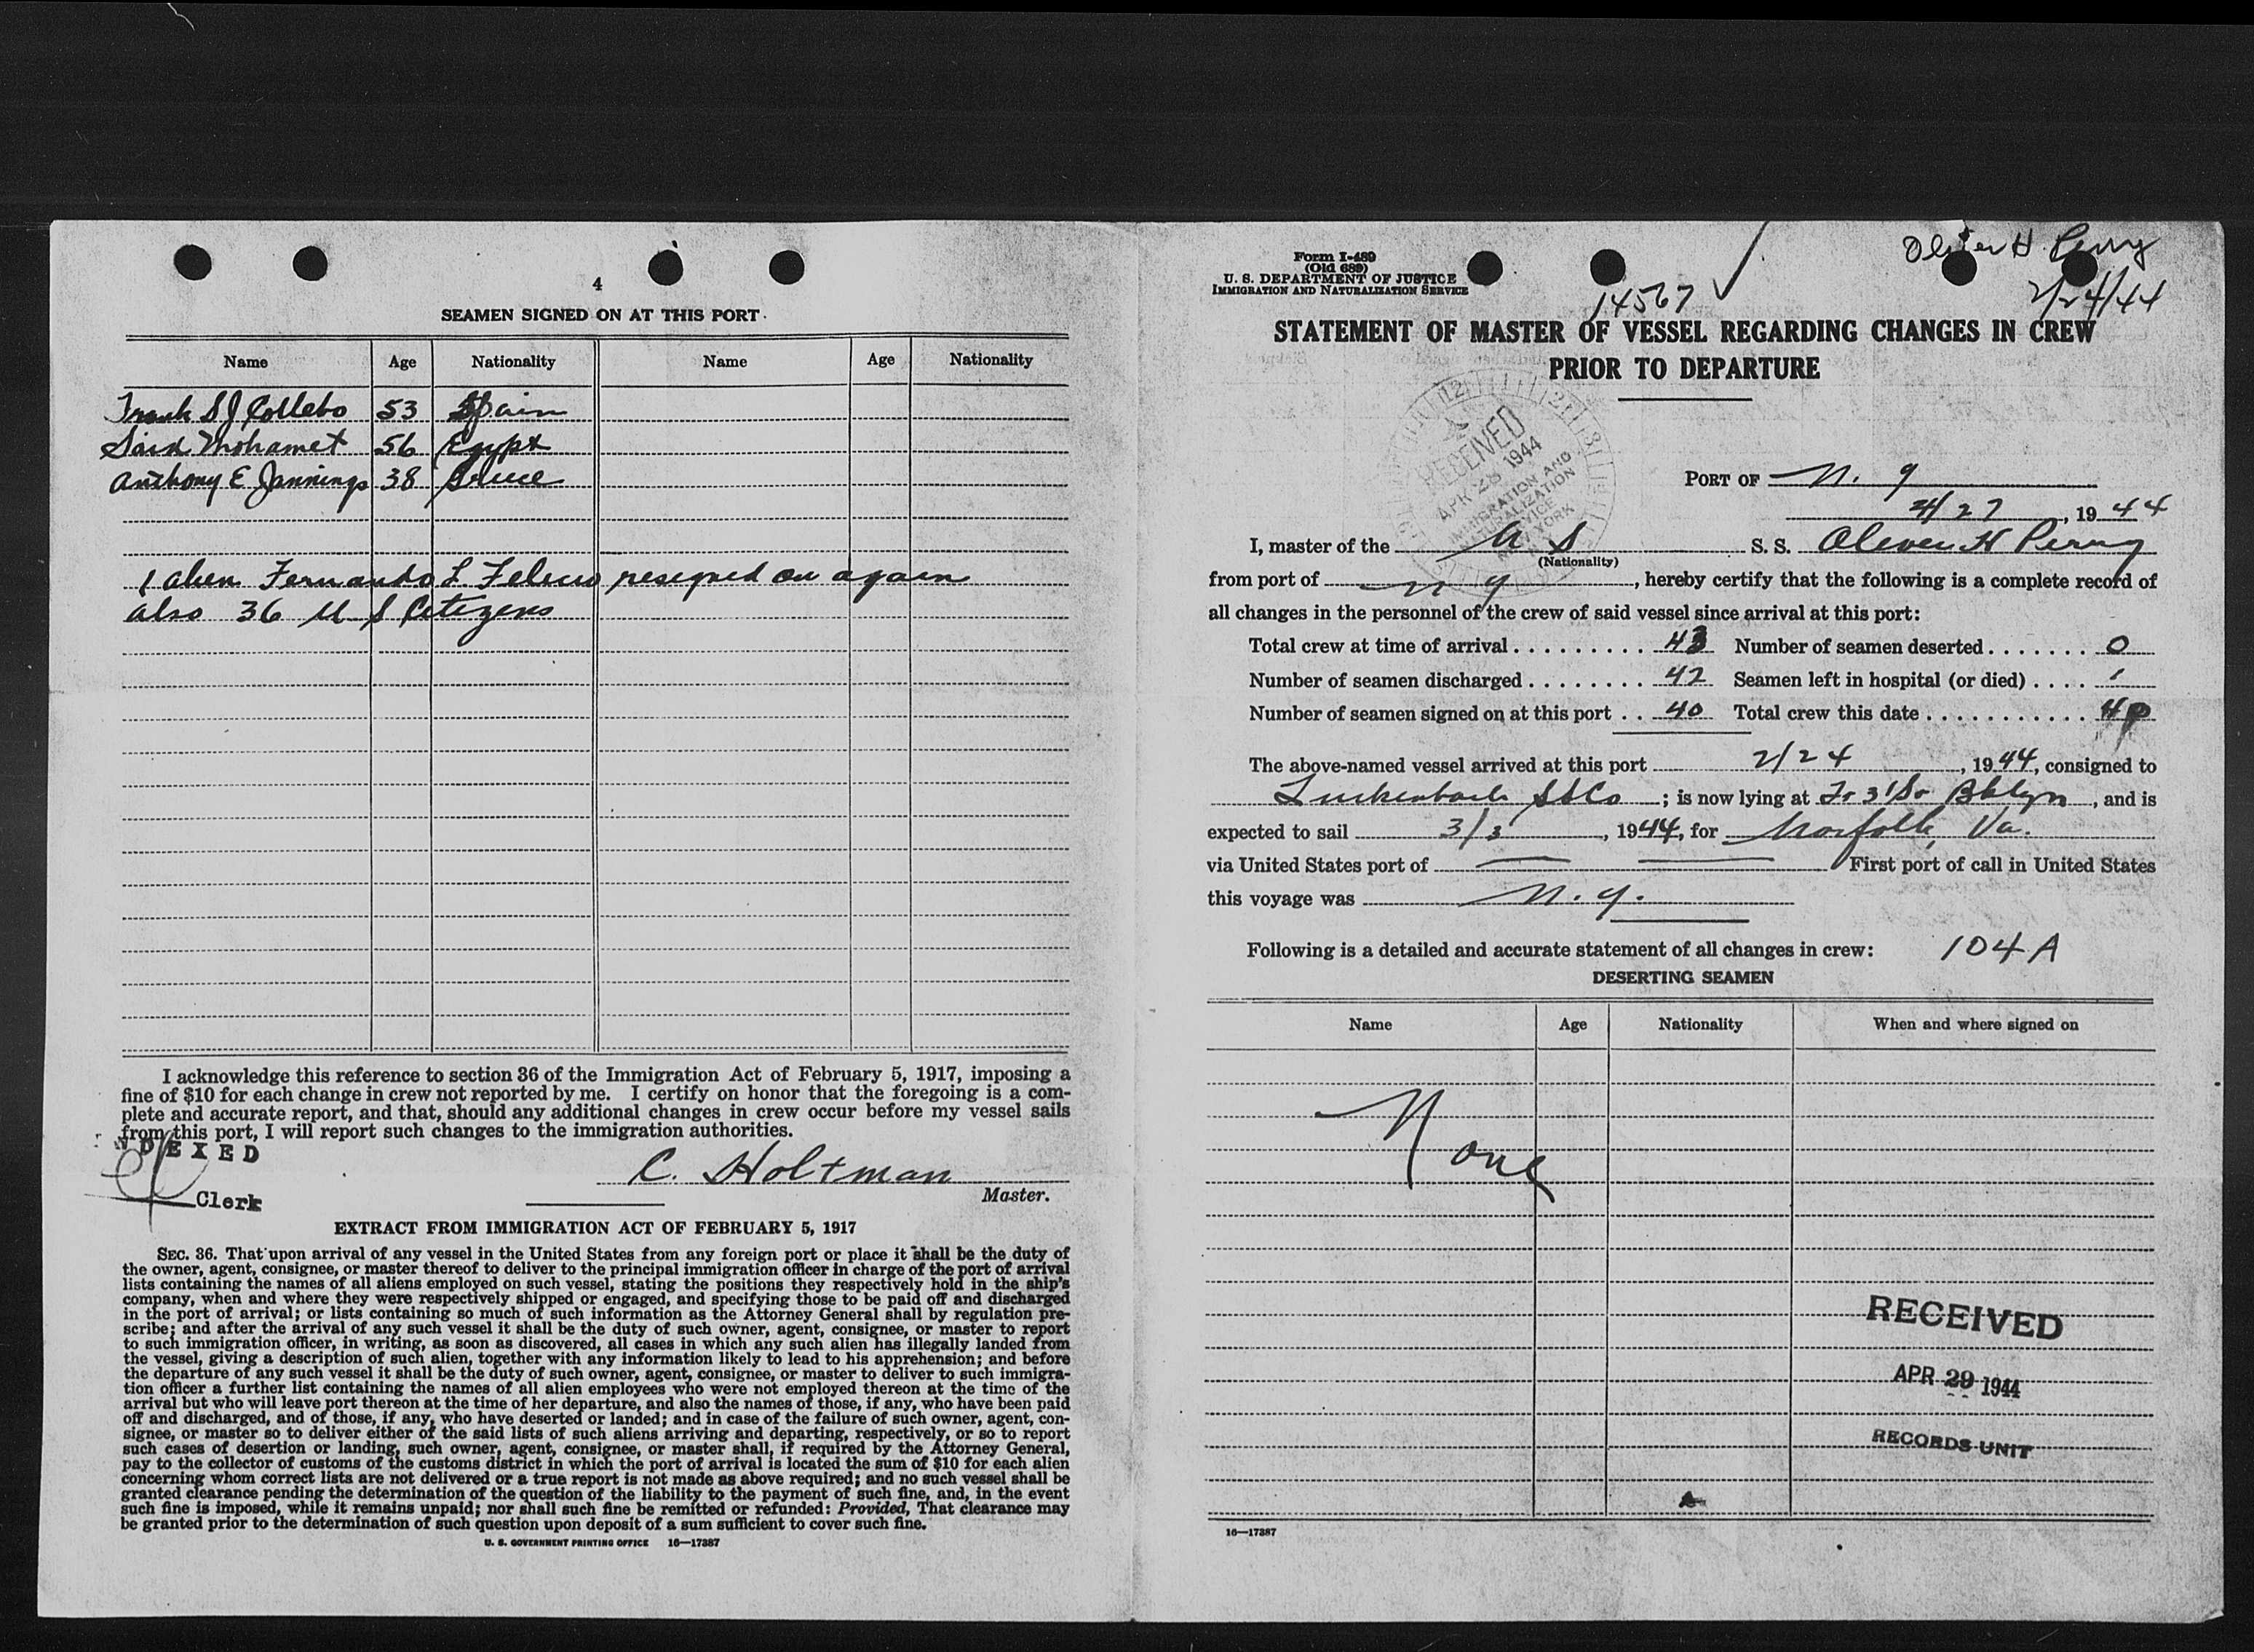 4
SEAMEN SIGNED ON AT THIS PORT
Name Age Nationality Name Age Nationality
Frank S J Collebo 53 Spain
Said Mohamet 56 Egypt
Anthony E Jannings 38 Greece
1 alien Fernando L. resigned on again
also 36 U S Citizens
I acknowledge this reference to section 36 of the Immigration Act of February 5, 1917, imposing a
fine of $10 for each change in crew not reported by me. I certify on honor that the foregoing is a com-
plete and accurate report, and that, should any additional changes in crew occur before my vessel sails
from this port, I will report such changes to the immigration authorities.
NDEXED
C. Holtman
Clerk
Master.
EXTRACT FROM IMMIGRATION ACT OF FEBRUARY 5, 1917
SEC. 36. That upon arrival of any vessel in the United States from any foreign port or place it shall be the duty of
the owner, agent, consignee, or master thereof to deliver to the principal immigration officer in charge of the port of arrival
lists containing the names of all aliens employed on such vessel, stating the positions they respectively hold in the ship's
company, when and where they were respectively shipped or engaged, and specifying those to be paid off and discharged
in the port of arrival; or lists containing so much of such information as the Attorney General shall by regulation pre-
scribe; and after the arrival of any such vessel it shall be the duty of such owner, agent, consignee, or master to report
to such immigration officer, in writing, as soon as discovered, all cases in which any such alien has illegally landed from
the vessel, giving a description of such alien, together with any information likely to lead to his apprehension; and before
the departure of any such vessel it shall be the duty of such owner, agent, consignee, or master to deliver to such immigra-
tion officer a further list containing the names of all alien employees who were not employed thereon at the time of the
arrival but who will leave port thereon at the time of her departure, and also the names of those, if any, who have been paid
off and discharged, and of those, if any, who have deserted or landed; and in case of the failure of such owner, agent, con-
signee, or master so to deliver either of the said lists of such aliens arriving and departing, respectively, or so to report
such cases of desertion or landing, such owner, agent, consignee, or master shall, if required by the Attorney General,
pay to the collector of customs of the customs district in which the port of arrival is located the sum of $10 for each alien
concerning whom correct lists are not delivered or a true report is not made as above required; and no such vessel shall be
granted clearance pending the determination of the question of the liability to the payment of such fine, and, in the event
such fine is imposed, while it remains unpaid; nor shall such fine be remitted or refunded: Provided, That clearance may
be granted prior to the determination of such question upon deposit of a sum sufficient to cover such fine.
U. S. GOVERNMENT PRINTING OFFICE 16—17387
Form I-489
(Old 689)
U. S. DEPARTMENT OF JUSTICE
IMMIGRATION AND NATURALIZATION SERVICE
Oliver H. Perry
2/24/44
14567
STATEMENT OF MASTER OF VESSEL REGARDING CHANGES IN CREW
PRIOR TO DEPARTURE
RECEIVED
APR 28 1944
IMMIGRATION AND
NATURALIZATION
SERVICE
NEW YORK
PORT OF N. Y
4/27, 1944
I, master of the U S S. S. Oliver H Perry
(Nationality)
from port of N Y, hereby certify that the following is a complete record of
all changes in the personnel of the crew of said vessel since arrival at this port:
Total crew at time of arrival 43 Number of seamen deserted 0
Number of seamen discharged 42 Seamen left in hospital (or died) 1
Number of seamen signed on at this port 40 Total crew this date 40
The above-named vessel arrived at this port 2/24, 1944, consigned to
Luckenbach SSCo; is now lying at Ft 31 St Bklyn, and is
expected to sail 3/3, 1944, for Norfolk, Va.
via United States port of First port of call in United States
this voyage was N. Y.
Following is a detailed and accurate statement of all changes in crew: 104A
DESERTING SEAMEN
Name Age Nationality When and where signed on
None
RECEIVED
APR 29 1944
RECORDS UNIT
16—17387